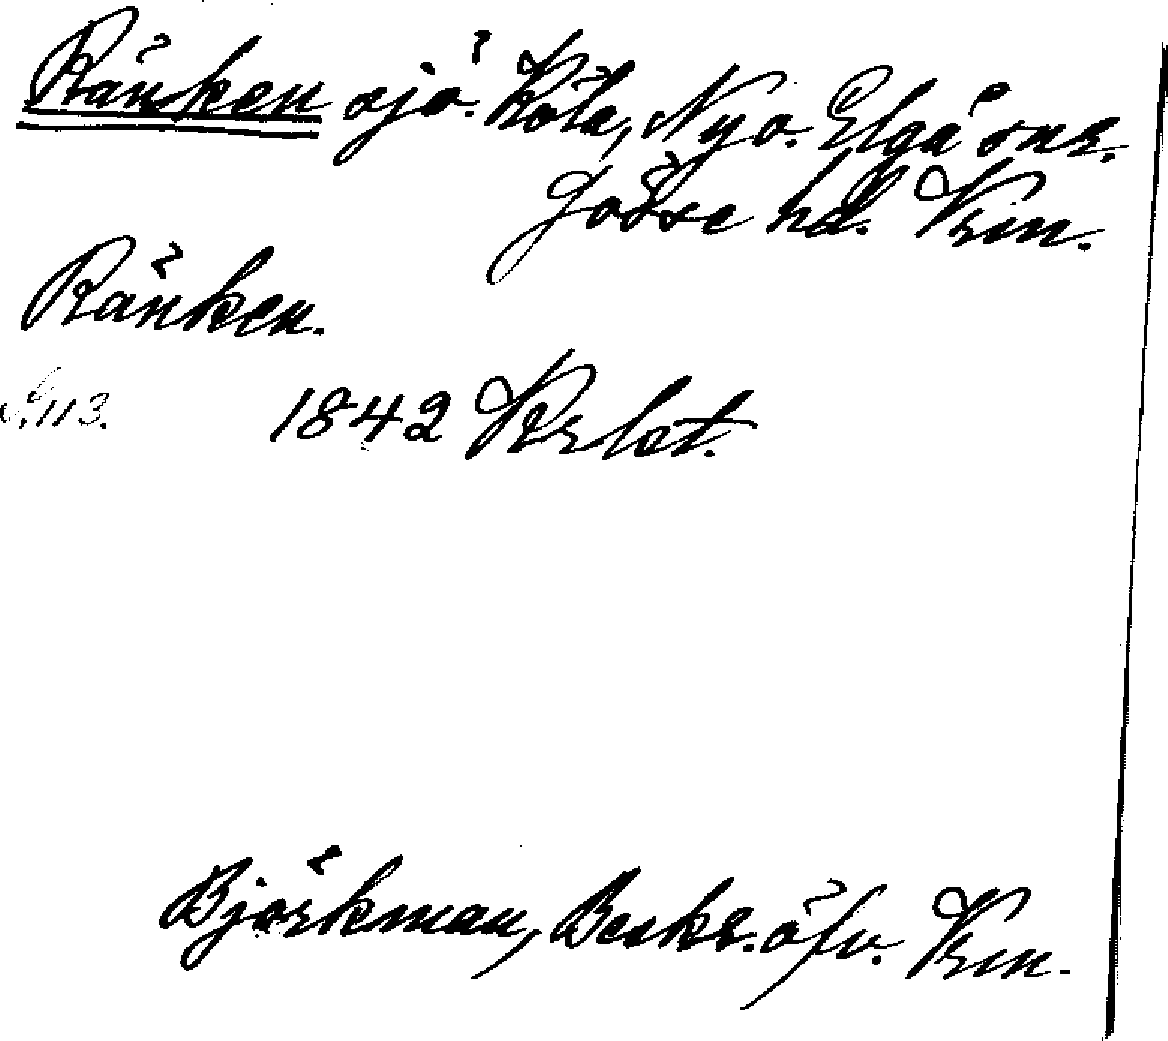 Ränken sjö. Köla, Ny o. Elgå snr.
Jösse hd. Vrm.
Ränken.
S. 113. 1842 Krbet.
Björkman, Beskr. öfv. Vrm.